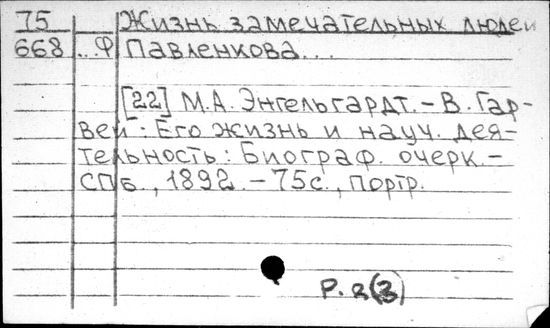 75 Жизнь замечательных людей
668 ...Ф Павленкова...
[22] М.А. Энгельгардт. – В. Гар-
вей: Его жизнь и науч. дея-
тельность: Биограф. очерк. –
СПб., 1892. – 75с., портр.
Р. 2(3)